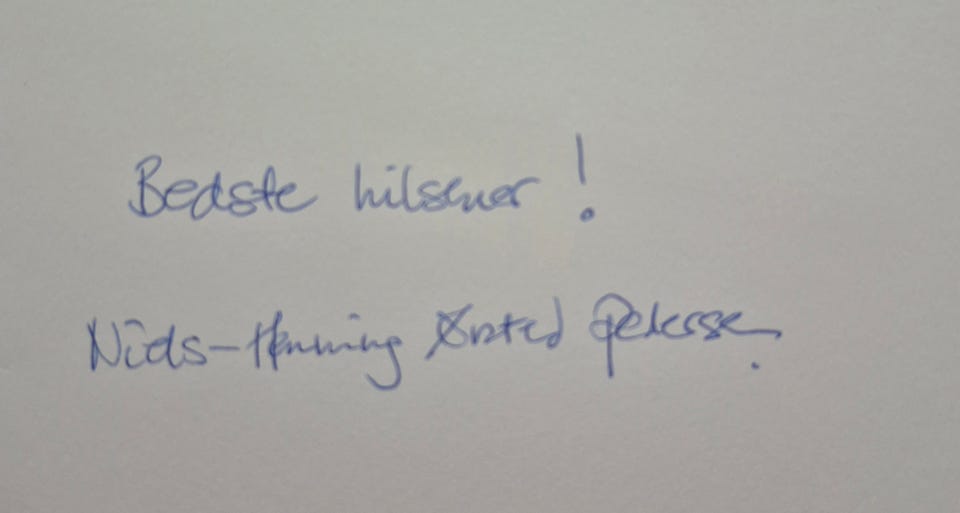 Bedste hilsener!
Niels-Henning Ørsted Pedersen.